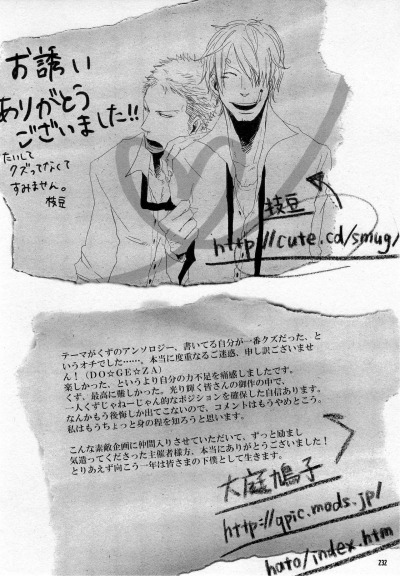 お誘い
ありがとう
ございました!!
たいして
クズってなくて
すみません。
枝豆
枝豆
http://cute.cd/smug/
テーマがくずのアンソロジー、書いてる自分が一番クズだった、と
いうオチでした……、本当に度重なるご迷惑、申し訳ございませ
ん!(DO☆GE☆ZA)
楽しかった、というより自分の力不足を痛感しましたです。
くず、最高に難しかった。光り輝く皆さんの御作の中で、
一人くずじゃねーじゃん的なポジションを確保した自信あります。
なんかもう後悔しか出てこないので、コメントはもうやめとこう。
私はもうちょっと身の程を知ろうと思います。
こんな素敵企画に仲間入りさせていただいて、ずっと励まし
気遣ってくださった主催者様方、本当にありがとうございました!
とりあえず向こう一年は皆さまの下僕として生きます。
大庭鳩子
http://qpic.mods.jp/
hato/index.htm
232